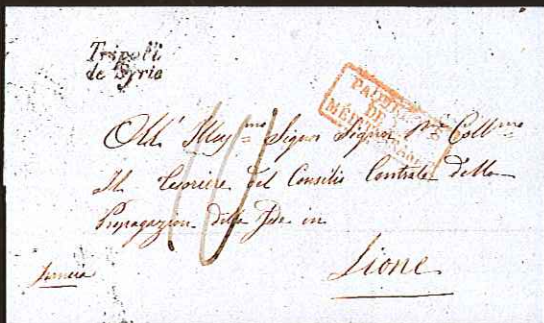 Tripoli
de Syrie
PAQUEBOTS
DE
MÉDITERRANÉE
10
All' Illus.mo Signor Signor P.ne Coll.mo
Il Tesoriere del Consilio Centrale della
Propagazion della fede in
Lione
Francia